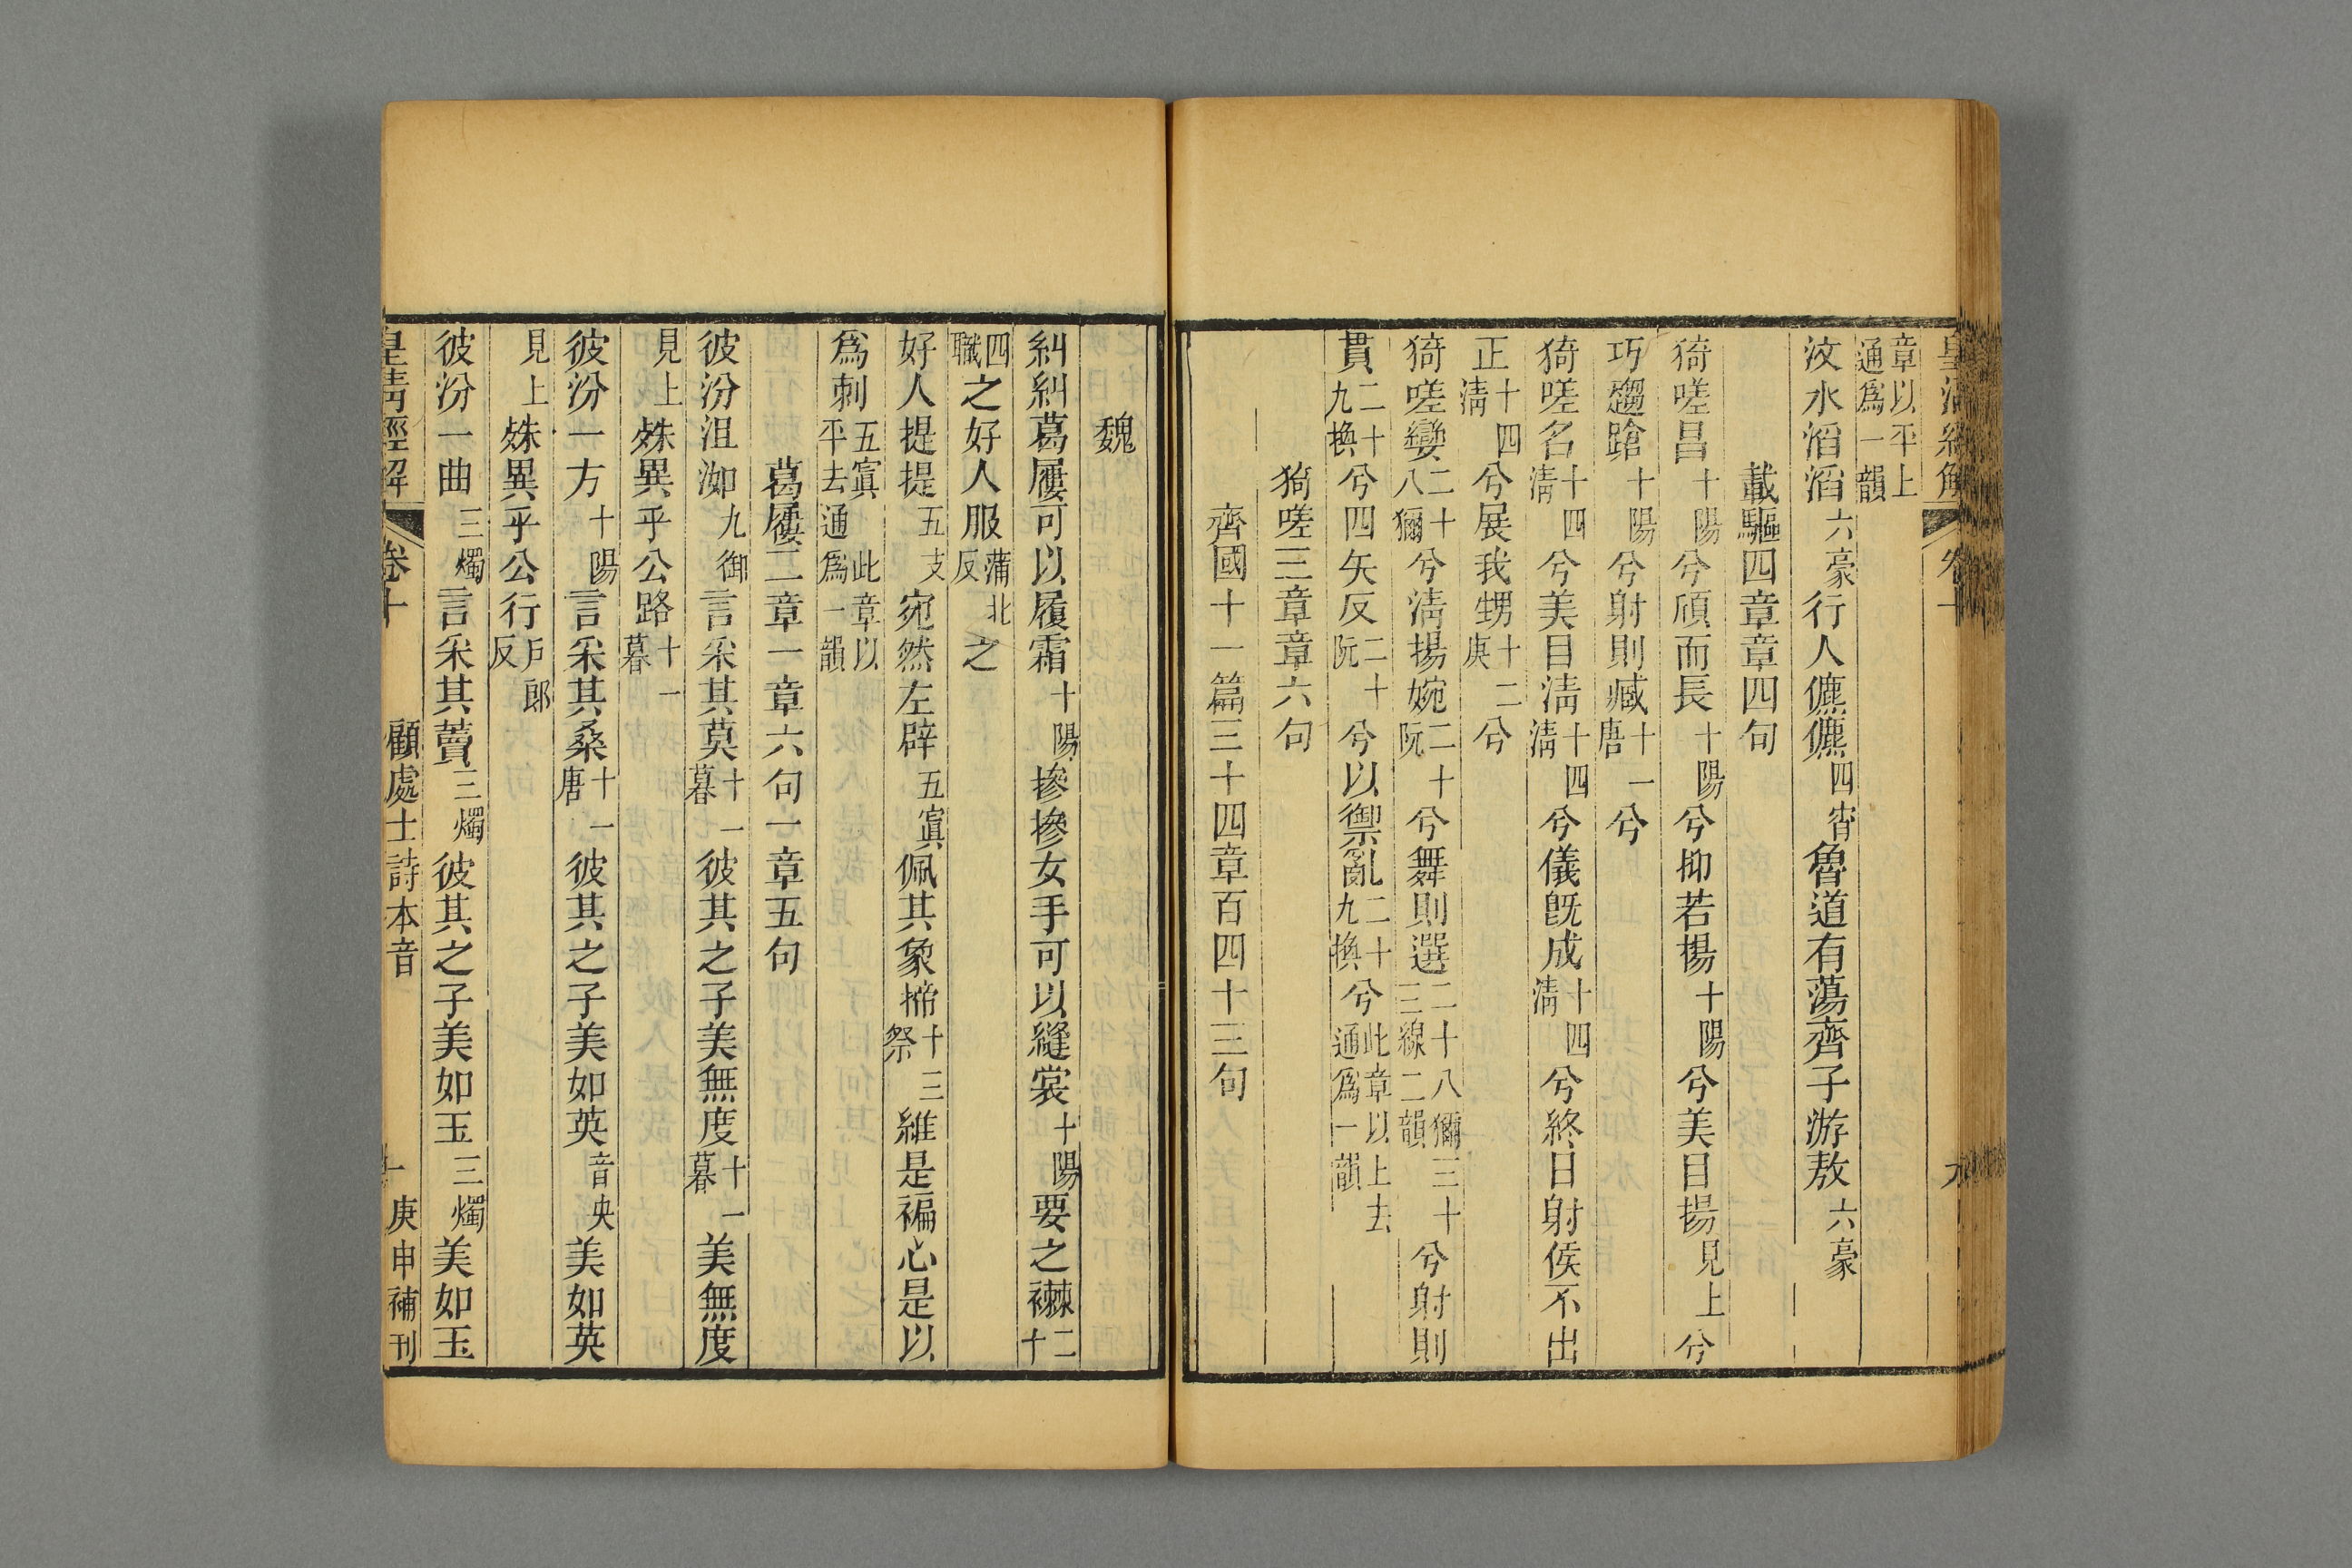 皇淸經解 卷十
章以平上通爲一韻
汶水滔滔六豪行人儦儦四宵魯道有蕩齊子游敖六豪
載驅四章章四句
猗嗟昌十陽兮頎而長十陽兮抑若揚十陽兮美目揚見上兮
巧趨蹌十陽兮射則臧十一唐兮
猗嗟名十四淸兮美目淸十四淸兮儀旣成十四淸兮終日射侯不出
正十四淸兮展我甥十二庚兮
猗嗟孌二十八獮兮淸揚婉二十阮兮舞則選二十八獮三十三線二韻兮射則
貫二十九換兮四矢反二十阮兮以禦亂二十九換兮此章以上去通爲一韻
猗嗟三章章六句
齊國十一篇三十四章百四十三句
魏
糾糾葛屨可以履霜十陽摻摻女手可以縫裳十陽要之襋二十
四職之好人服蒲北反之
好人提提五支宛然左辟五寘佩其象揥十三祭維是褊心是以
爲刺五寘 此章以平去通爲一韻
葛屨二章一章六句一章五句
彼汾沮洳九御言采其莫十一暮彼其之子美無度十一暮美無度
見上殊異乎公路十一暮
彼汾一方十陽言采其桑十一唐彼其之子美如英音央美如英
見上殊異乎公行戶郎反
彼汾一曲三燭言采其藚三燭彼其之子美如玉三燭美如玉
皇淸經解 卷十 顧處士詩本音 庚申補刊